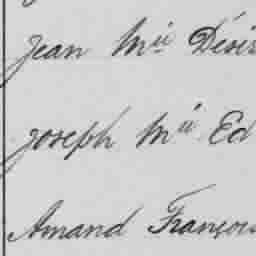 Jean Mie Désir
Joseph Mie Ed
Amand François